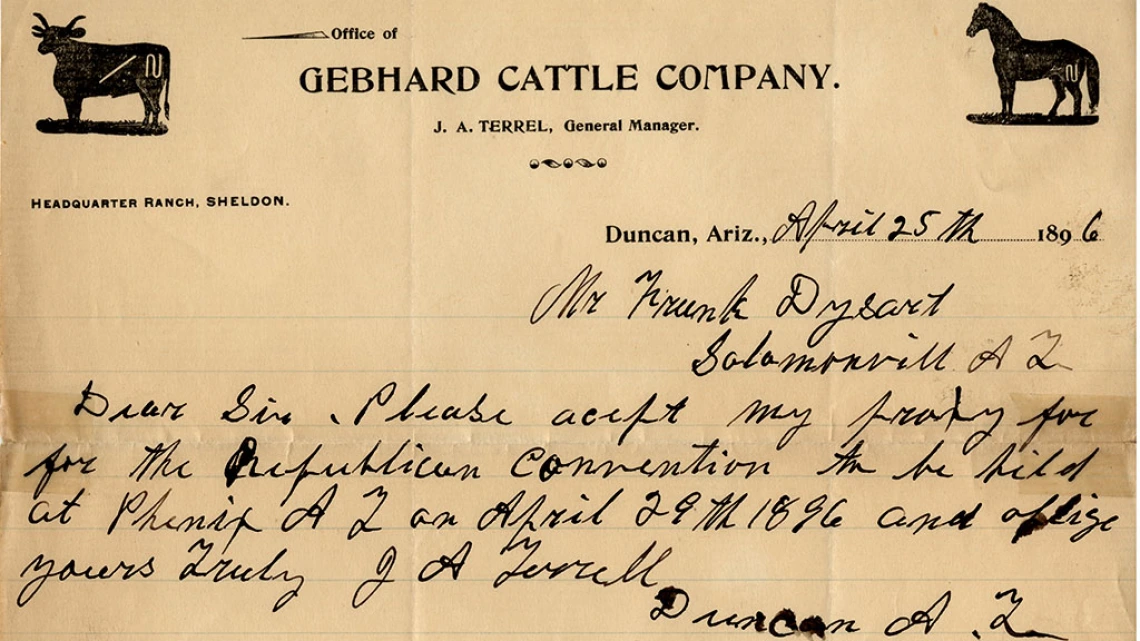 Office of
GEBHARD CATTLE COMPANY.
J. A. TERREL, General Manager.
HEADQUARTER RANCH, SHELDON.
Duncan, Ariz., April 25th 1896
Mr Frank Dysart
Solomonvill A Z
Dear Sir. Please acept my proxy for
for the Republican Convention to be hild
at Phenix A Z on April 29th 1896 and oblige
yours Truly J A Terrell
Duncan A. Z